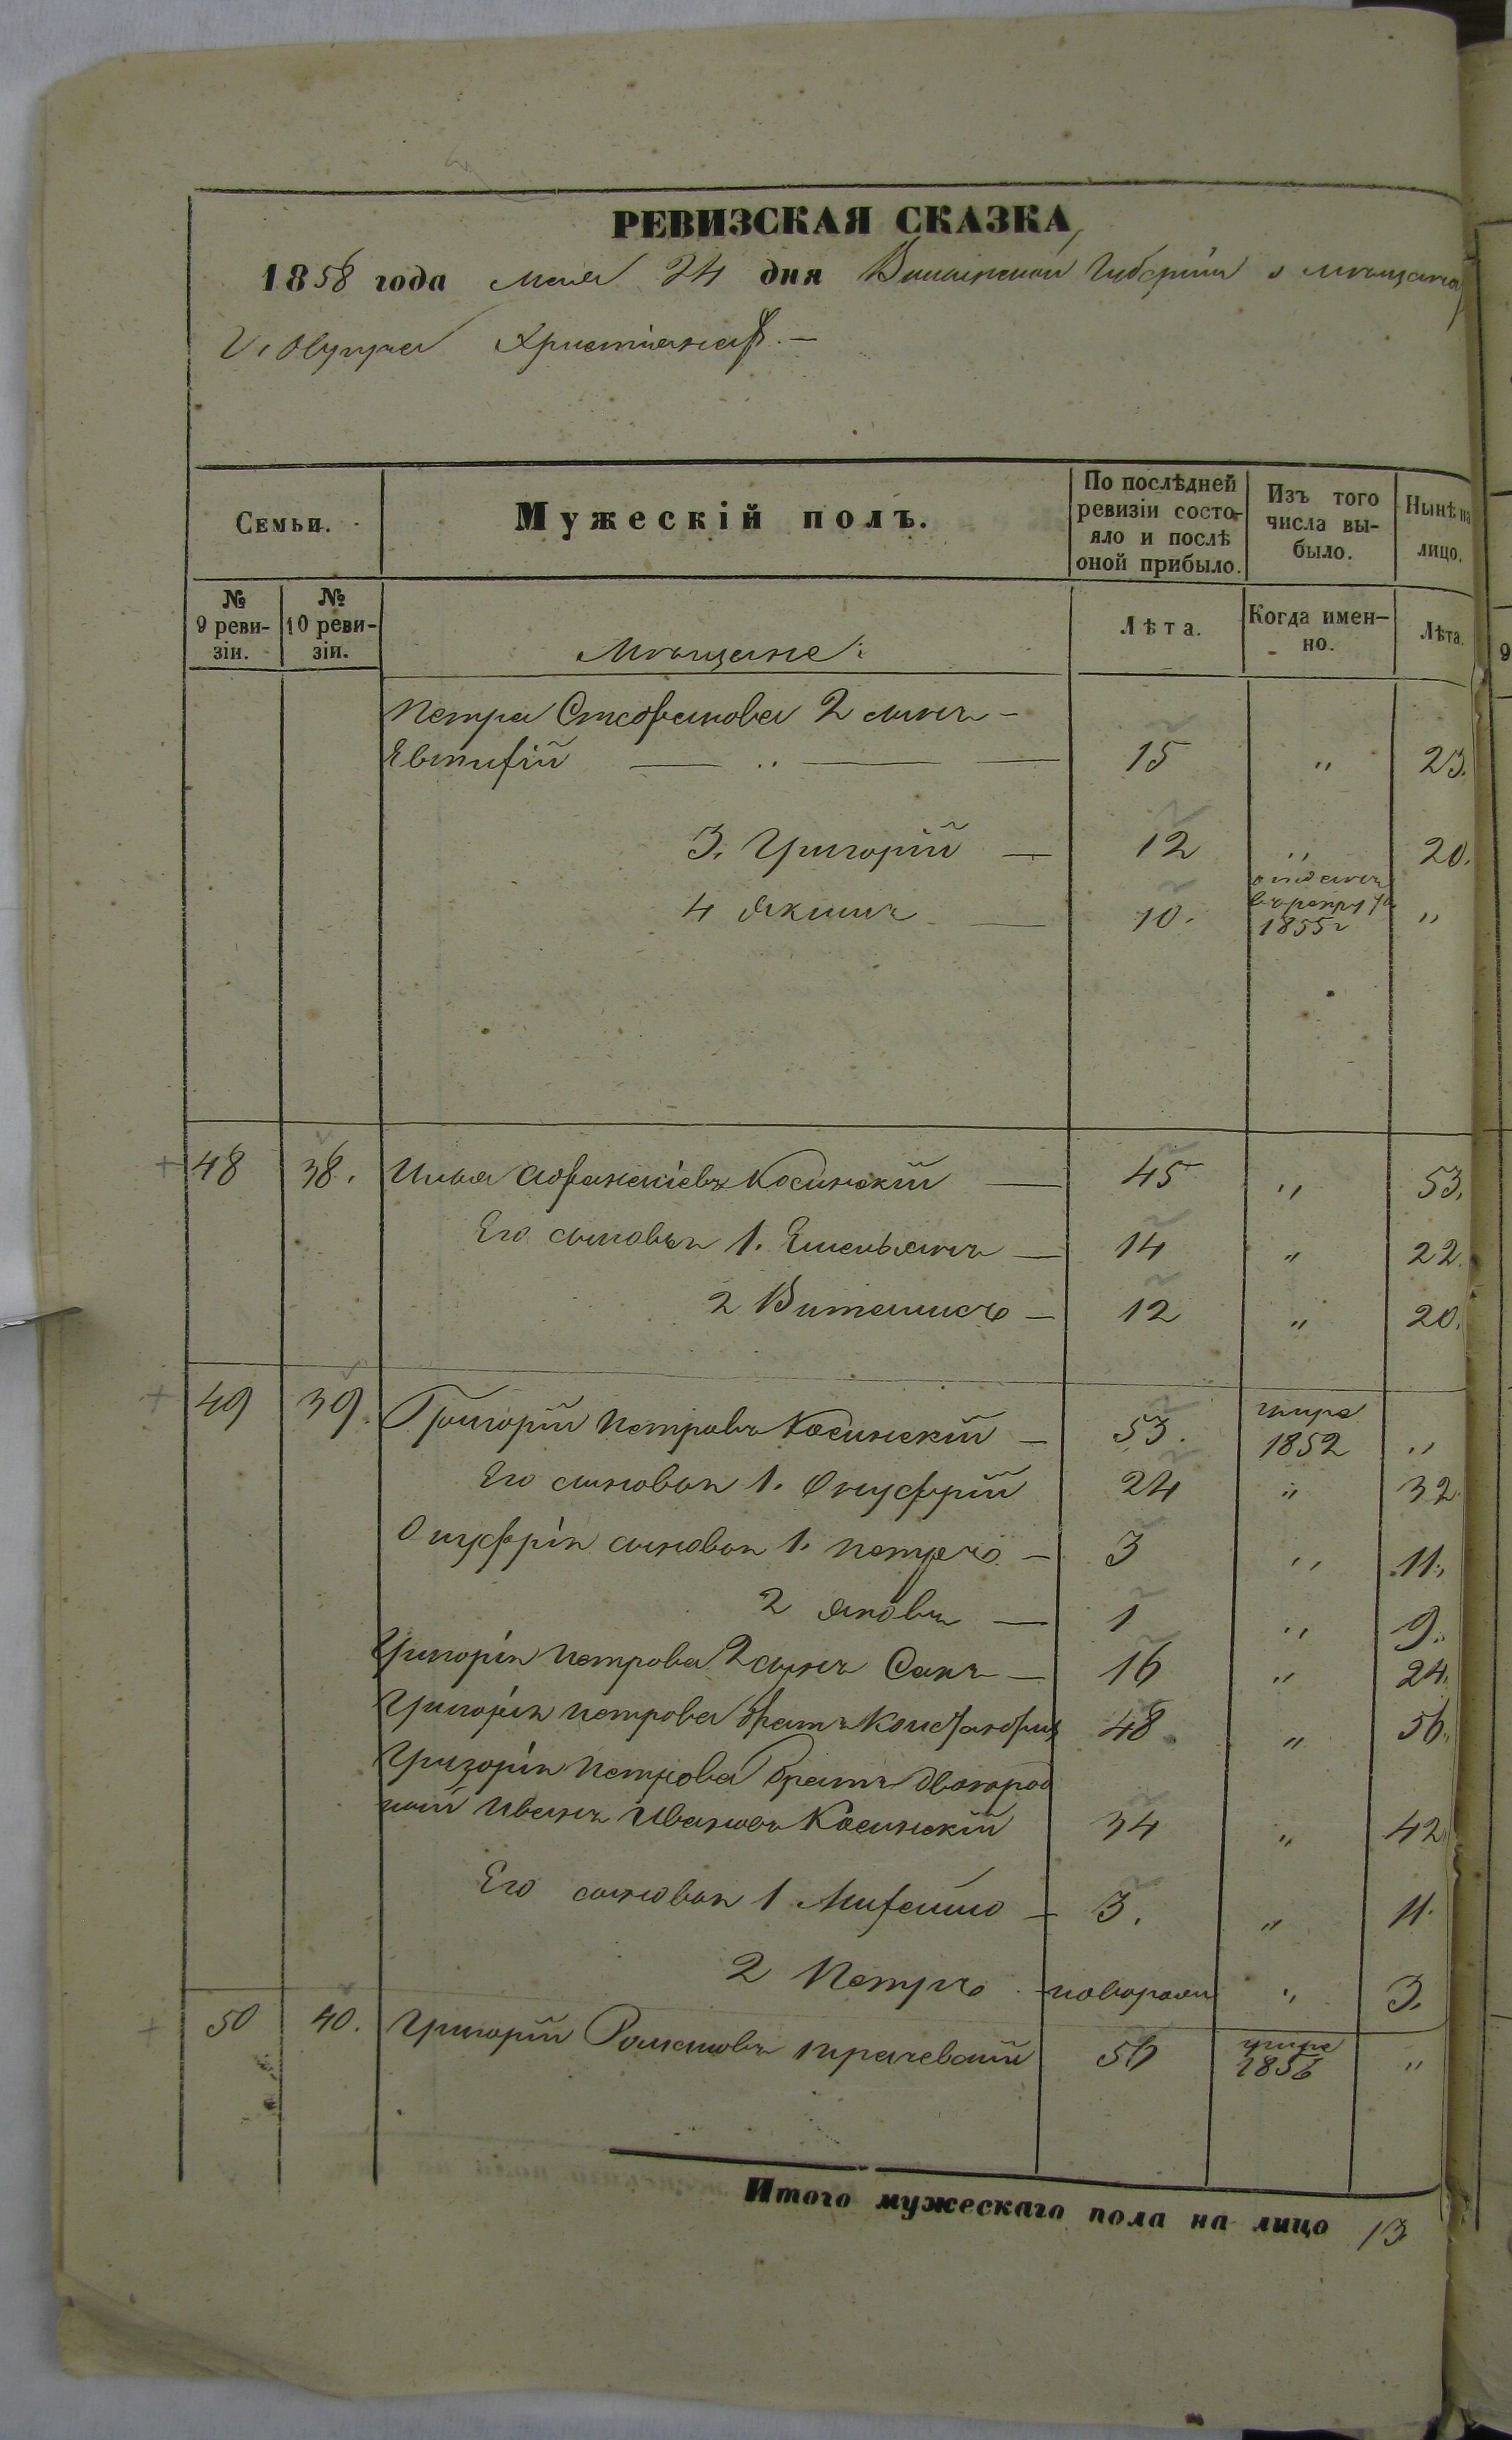 РЕВИЗСКАЯ СКАЗКА
1858 года мая 24 дня Губернии о мѣщанах
Христіанах. —
Семьи. Мужескій полъ. По послѣдней ревизіи состояло и послѣ оной прибыло. Изъ того числа выбыло. Нынѣ на лицо.
№ 9 ревизіи. № 10 ревизіи. Мѣщане: Лѣта. Когда именно. Лѣта.
Петра Стефанова 2 сынъ —
Евтифій — " — 15 " 23.
3. Григорій — 12 " 20.
4 Якимъ — 10. отданъ въ рекруты 1855 г "
48 38. Илья Афанасіевъ Косинскій — 45 " 53.
Его сыновья 1. Емельянъ — 14 " 22.
2 — 12 " 20.
49 39. Григорій Петровъ Косинскій — 53. умре 1852 "
Его сыновья 1. Онуфрій 24 " 32.
Онуфрія сыновья 1. Петръ — 3 " 11.
2 Яковъ — 1 " 9.
Григорія Петрова 2 сынъ — 16 " 24.
Григорія Петрова братъ 48. " 56.
Григорія Петрова братъ двоюрод
ный Иванъ Ивановъ Косинскій 34 " 42.
Его сыновья 1 — 3. " 11.
2 Петръ новорожд " 3.
50 40. Григорій Романовъ 56 умре 1856 "
Итого мужескаго пола на лицо 13